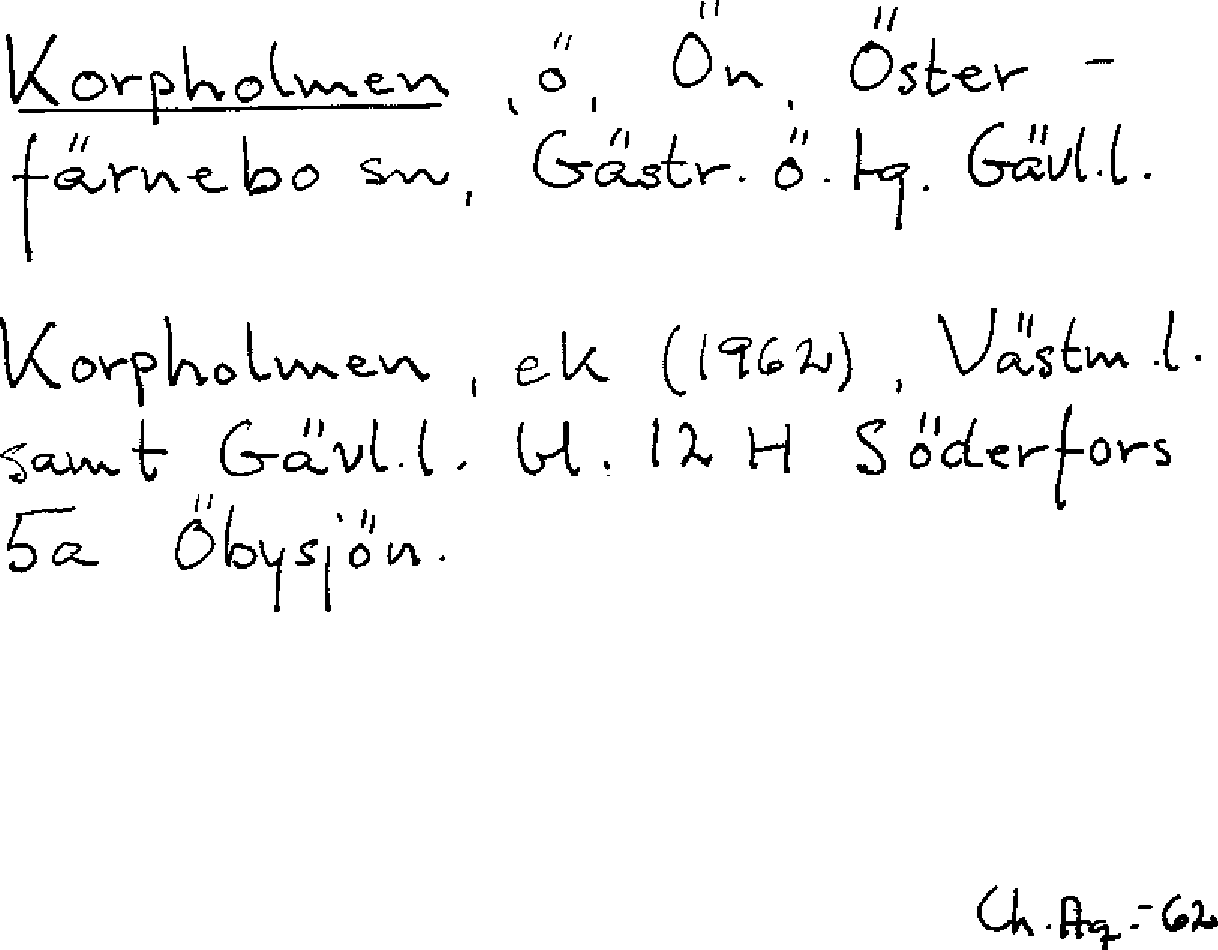 Korpholmen, ö, Ön, Öster-
färnebo sn, Gästr. ö. tg. Gävl.l.
Korpholmen, ek (1962), Västm.l.
samt Gävl.l. bl. 12 H Söderfors
5a Öbysjön.
Ch. Ag. -62